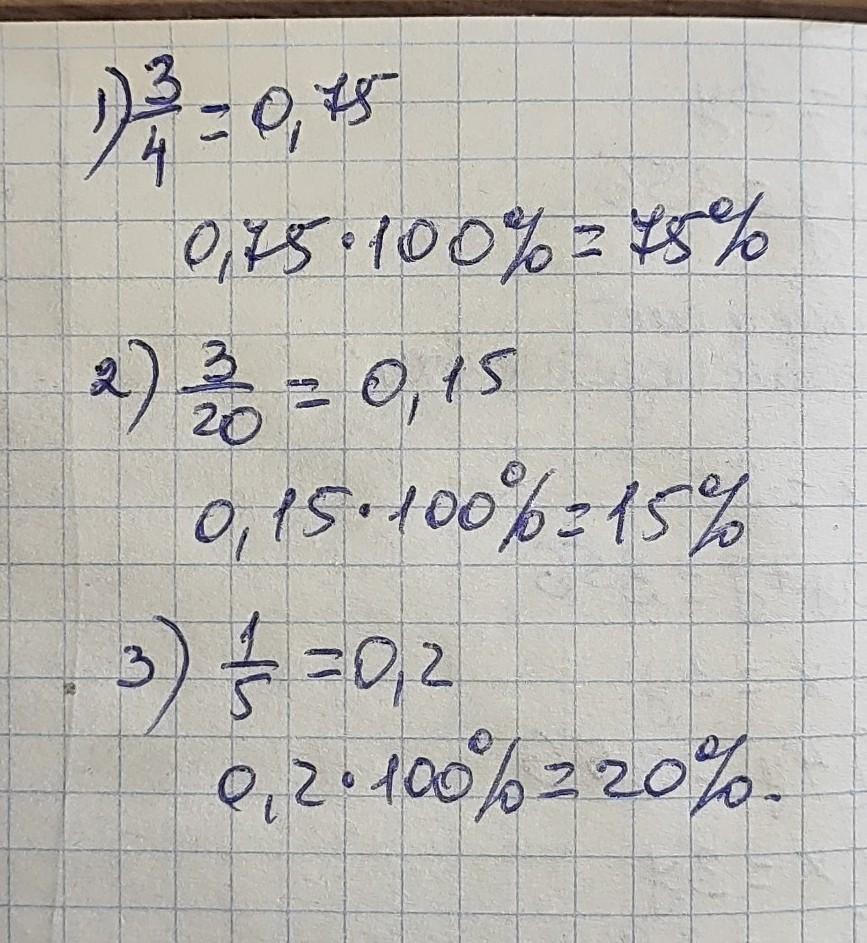 1) 3/4 = 0,75
0,75·100% = 75%
2) 3/20 = 0,15
0,15·100% = 15%
3) 1/5 = 0,2
0,2·100% = 20%.